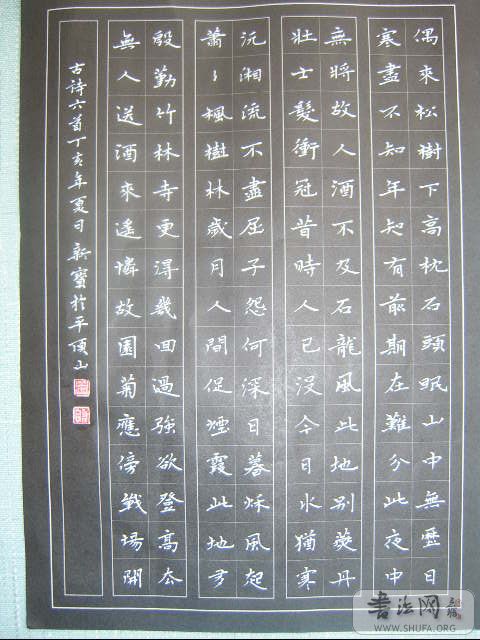 偶來松樹下高枕石頭眠山中無曆日
寒盡不知年知有前期在難分此夜中
無將故人酒不及石龍風此地別燕丹
壯士髮衝冠昔時人已沒今日水猶寒
沅湘流不盡屈子怨何深日暮秋風起
蕭々楓樹林歲月人間促煙霞此地多
殷勤竹林寺更得幾回過強欲登高去
無人送酒來遙憐故園菊應傍戰場開
古詩六首丁亥年夏日新寶於平頂山
書法网
WWW.SHUFA.ORG